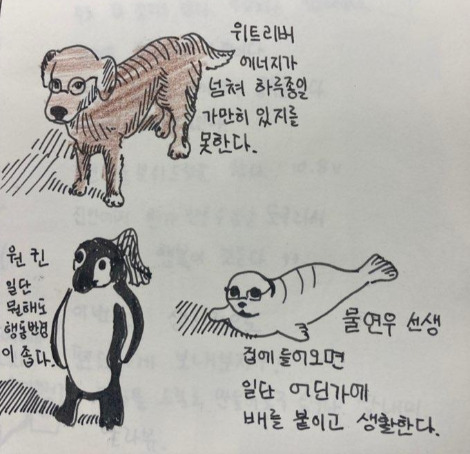 위트리버
에너지가
넘쳐 하루종일
가만히 있지를
못한다.
원 킨
일단
뭘해도
행동반경
이 좁다.
물연우 선생
집에 들어오면
일단 어딘가에
배를 붙이고 생활한다.